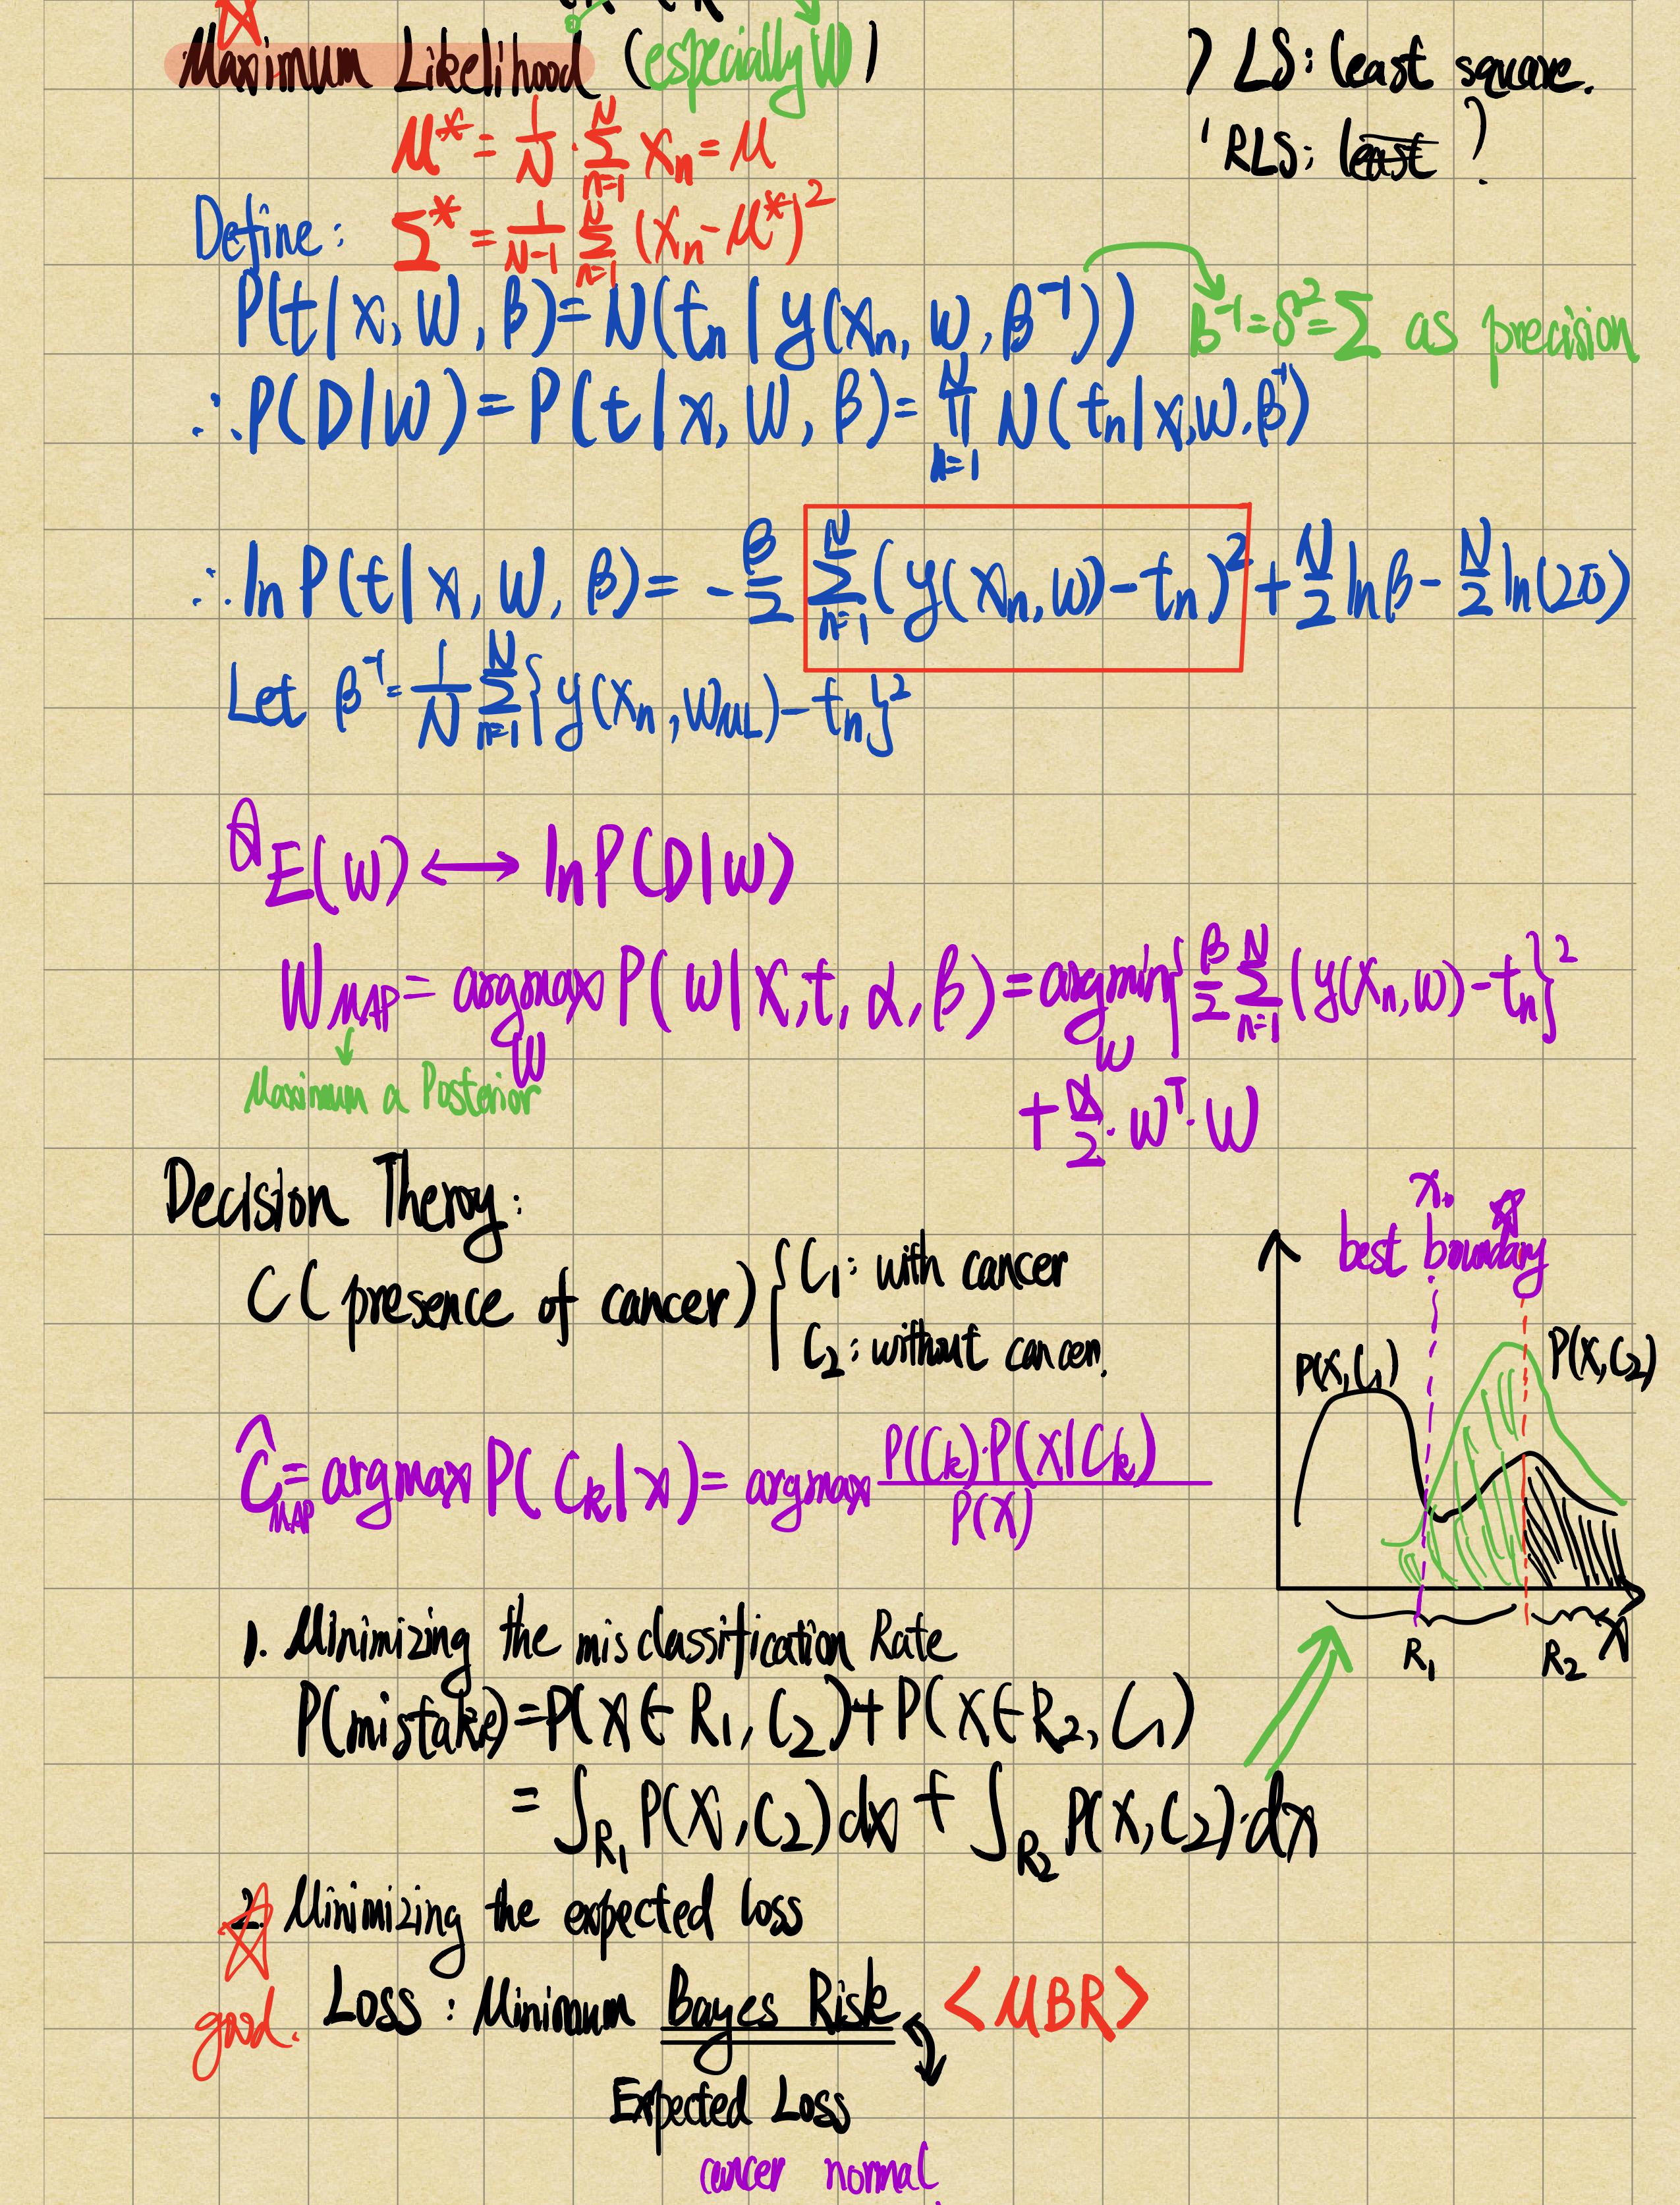 Maximum Likelihood (especially W)
? LS: least square.
' RLS: least ?
μ* = 1/N · Σ_{n=1}^{N} x_n = μ
Define: Σ* = 1/(N-1) Σ_{n=1}^{N} (x_n - μ*)²
P(t|x, W, β) = N(t_n | y(x_n, w, β⁻¹)) β⁻¹ = δ² = Σ as precision
∴ P(D|W) = P(t|x, W, β) = Π_{n=1}^{N} N(t_n|x,w.β⁻¹)
∴ ln P(t|x, W, β) = - β/2 Σ_{n=1}^{N} (y(x_n, w) - t_n)² + N/2 ln β - N/2 ln(2π)
Let β⁻¹ = 1/N Σ_{n=1}^{N} {y(x_n, w_ML) - t_n}²
E(w) ↔ ln P(D|w)
W_MAP = argmax_W P(w|X, t, α, β) = argmin_w {β/2 Σ_{n=1}^{N} (y(x_n, w) - t_n}²
Maximum a Posterior
+ α/2 · w^T · W
Decision Theroy:
C (presence of cancer) { C₁: with cancer
C₂: without cancer.
x₀
best boundary
P(X,C₁)
P(X,C₂)
R₁
R₂
X
Ĉ_MAP = argmax P(C_k|x) = argmax P(C_k)·P(X|C_k) / P(X)
1. Minimizing the misclassification Rate
P(mistake) = P(X∈R₁, C₂) + P(X∈R₂, C₁)
= ∫_{R₁} P(X, C₂) dx + ∫_{R₂} P(X, C₂)·dx
2. Minimizing the expected loss
good. Loss: Minimum Bayes Risk <MBR>
Expected Loss
cancer normal